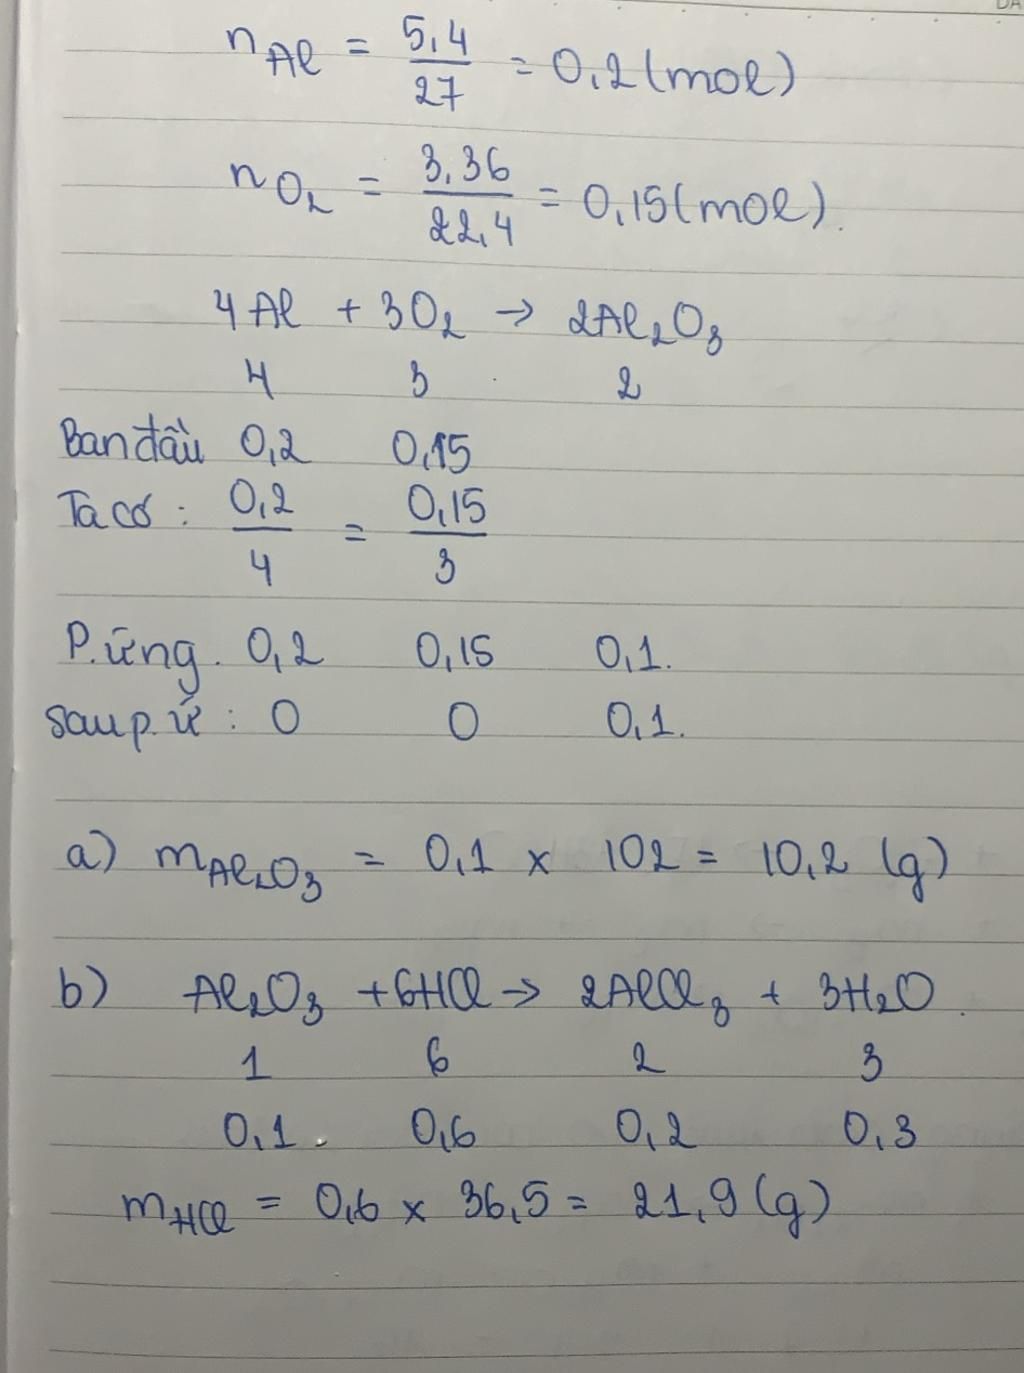 nAl = 5,4/27 = 0,2 (mol)
nO2 = 3,36/22,4 = 0,15 (mol).
4Al + 3O2 → 2Al2O3
4 3 2
Ban đầu 0,2 0,15
Ta có : 0,2/4 = 0,15/3
P.ứng. 0,2 0,15 0,1.
sau p.ứ : 0 0 0,1.
a) mAl2O3 = 0,1 x 102 = 10,2 (g)
b) Al2O3 + 6HCl → 2AlCl3 + 3H2O.
1 6 2 3
0,1. 0,6 0,2 0,3
mHCl = 0,6 x 36,5 = 21,9 (g)